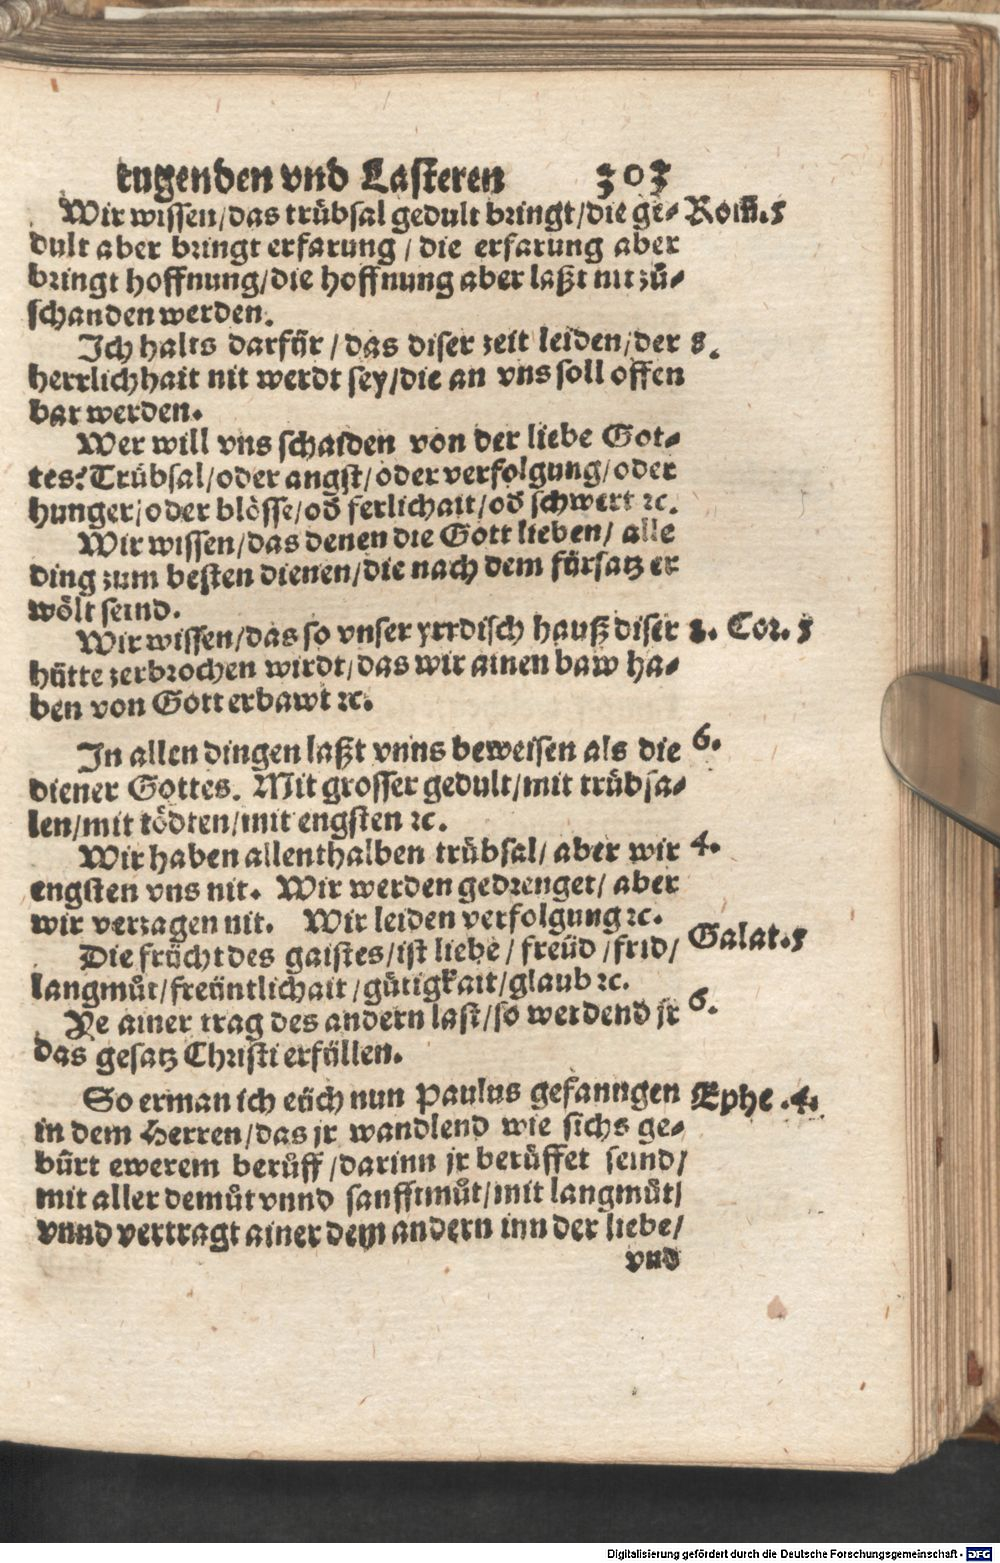 tugenden vnd Lasteren 303
Wir wissen/das trübsal gedult bringt/die ge- Rom̃.5
dult aber bringt erfarung / die erfarung aber
bringt hoffnung/die hoffnung aber laßt nit zů-
schanden werden.
Ich halts darfür / das diser zeit leiden/der 8.
herrlichhait nit werdt sey/die an vns soll offen
bar werden.
Wer will vns schaiden von der liebe Got-
tes? Trübsal/oder angst/oder verfolgung/oder
hunger/oder blösse/od̕ ferlichait/od̕ schwert ꝛc.
Wir wissen/das denen die Gott lieben/ alle
ding zum besten dienen/die nach dem fürsatz er
wölt seind.
Wir wissen/das so vnser yrrdisch hauß diser 2. Cor. 5
hütte zerbrochen wirdt/das wir ainen baw ha-
ben von Gott erbawt ꝛc.
In allen dingen laßt vnns beweisen als die 6.
diener Gottes. Mit grosser gedult/mit trübsa-
len/mit tödten/mit engsten ꝛc.
Wir haben allenthalben trübsal/ aber wir 4.
engsten vns nit. Wir werden gedrenget/ aber
wir verzagen nit. Wir leiden verfolgung ꝛc.
Die frücht des gaistes/ist liebe / freüd /frid/ Galat.5
langmůt/freüntlichait /gütigkait/glaub ꝛc.
Ye ainer trag des andern last/so werdend jr 6.
das gesatz Christi erfüllen.
So erman ich eüch nun Paulus gefanngen Ephe .4.
in dem Herren/das jr wandlend wie sichs ge-
bürt ewerem berůff /darinn jr berüffet seind/
mit aller demůt vnnd sanfftmůt/mit langmůt/
vnnd vertragt ainer dem andern inn der liebe/
vnd
Digitalisierung gefördert durch die Deutsche Forschungsgemeinschaft - DFG